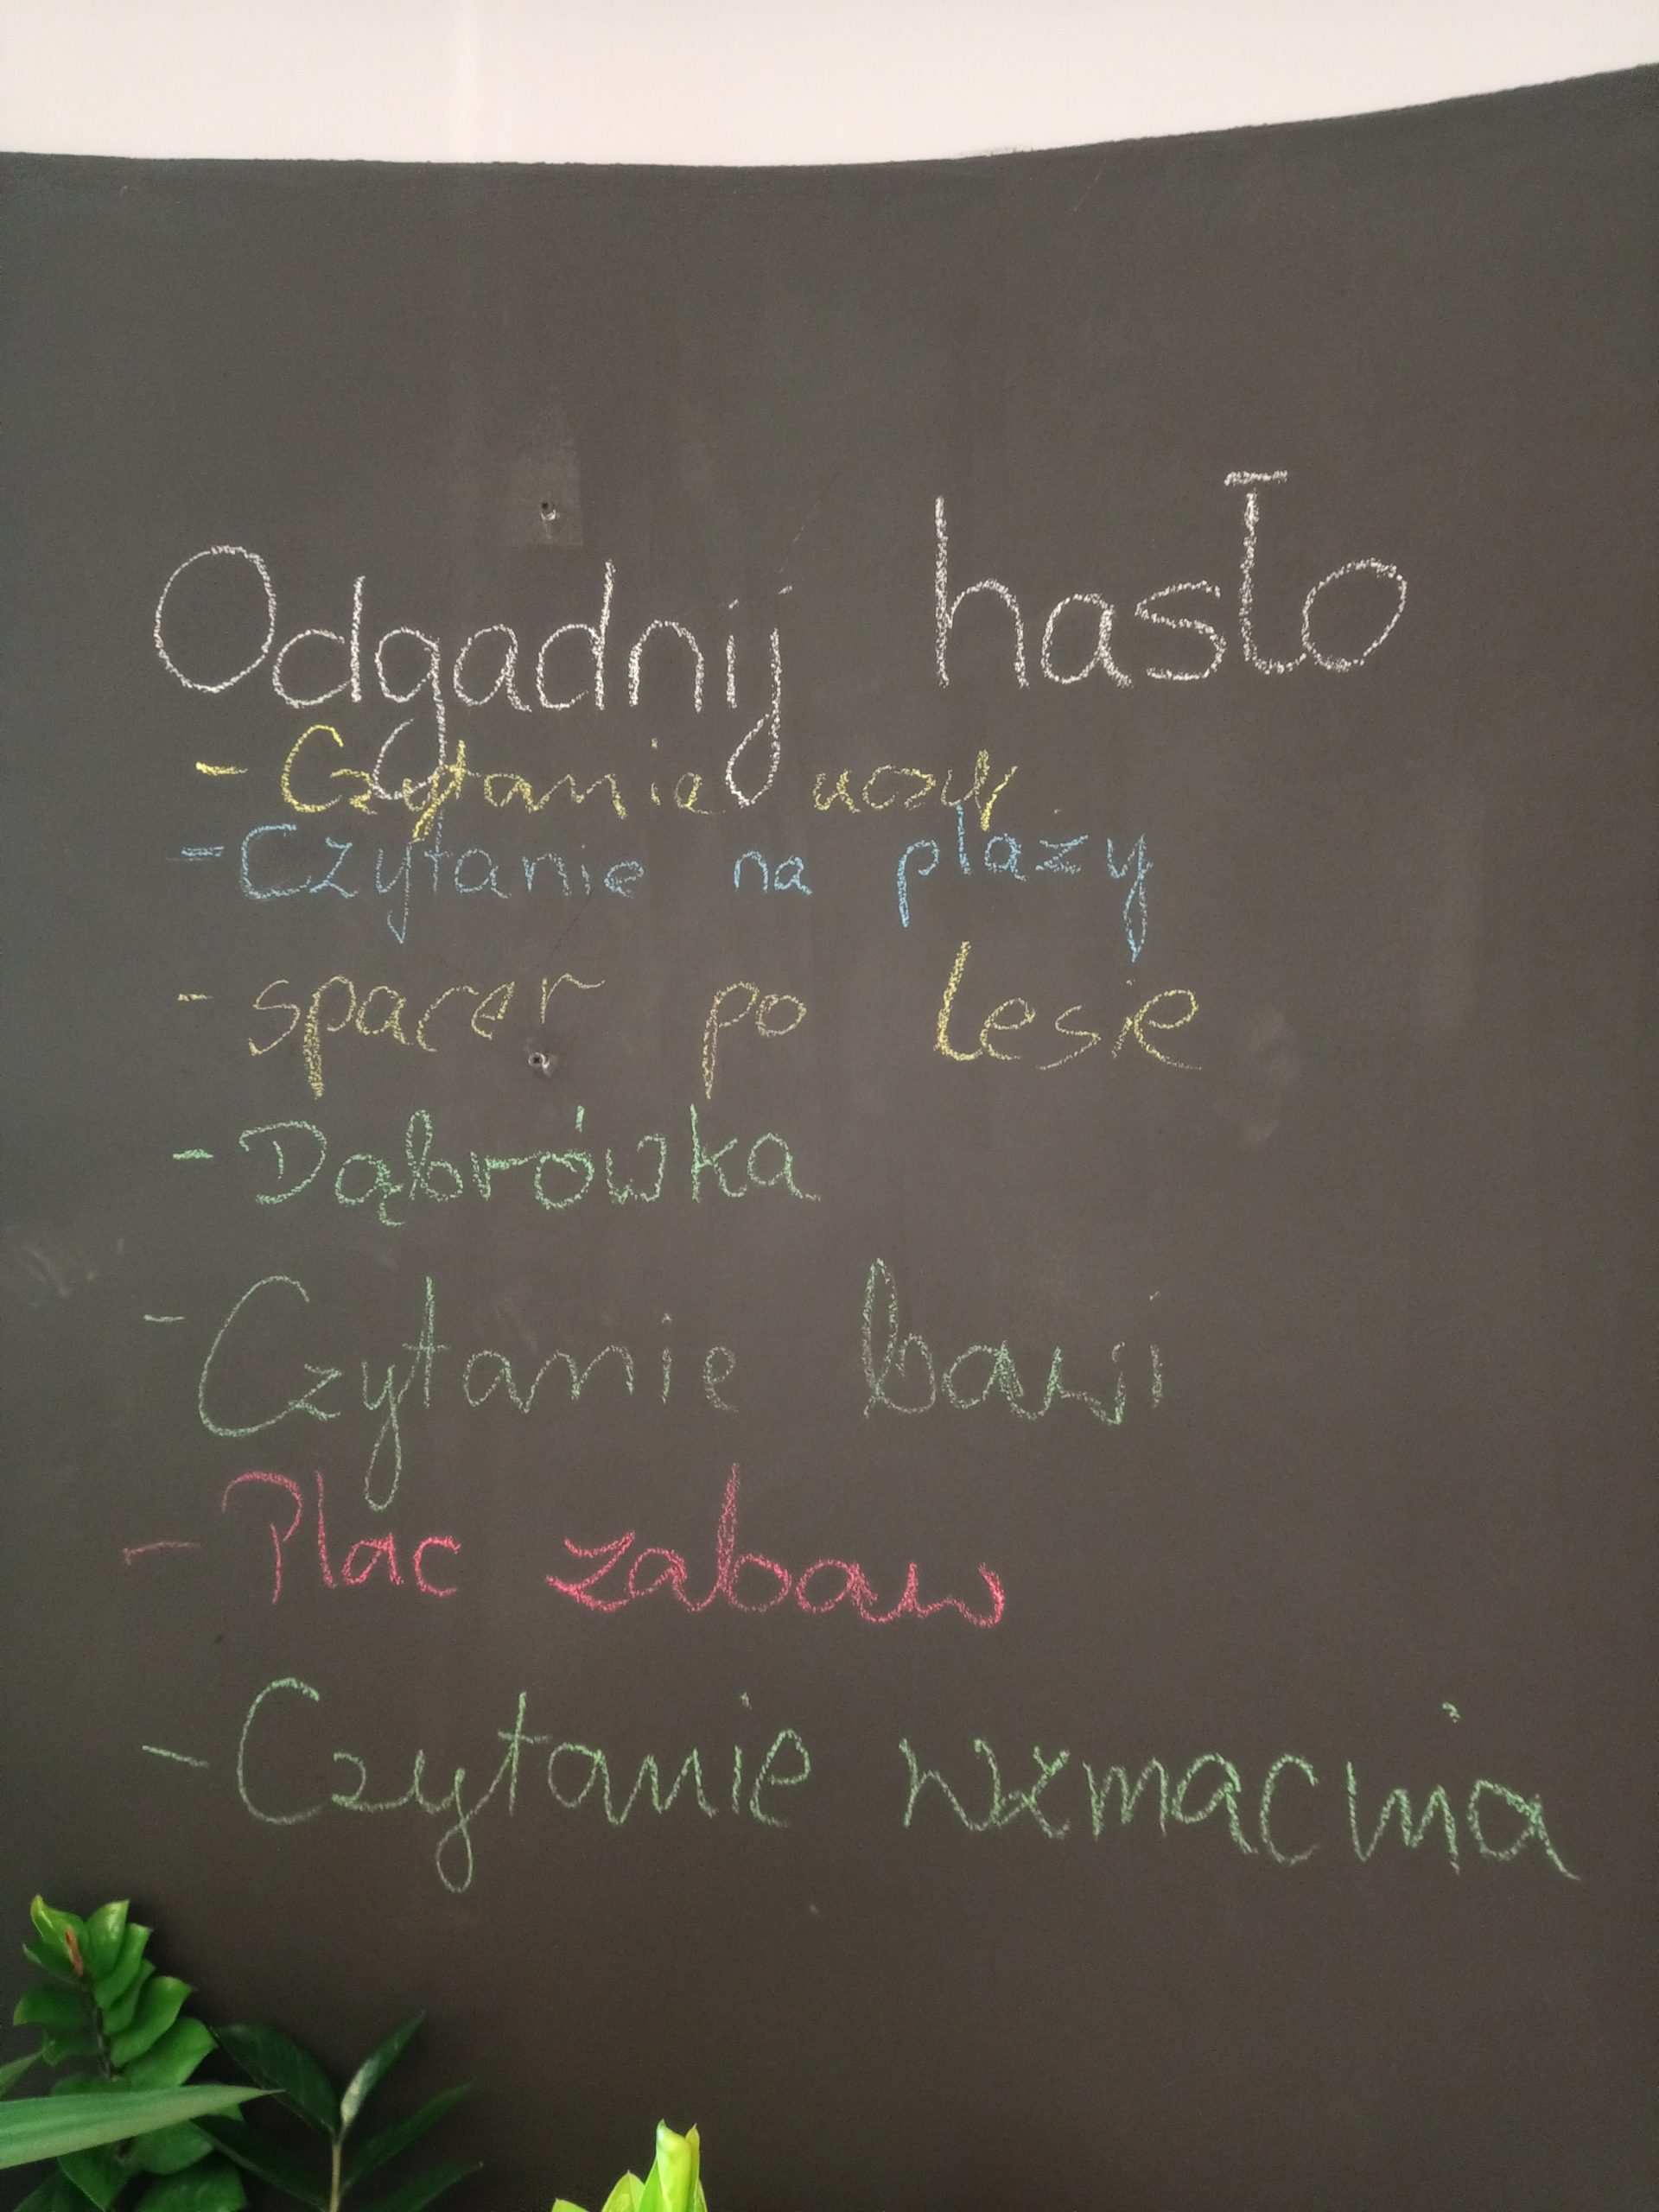 Odgadnij hasło
- Czytanie uczy
- Czytanie na plaży
- spacer po lesie
- Dąbrówka
- Czytanie bawi
- Plac zabaw
- Czytanie wzmacnia